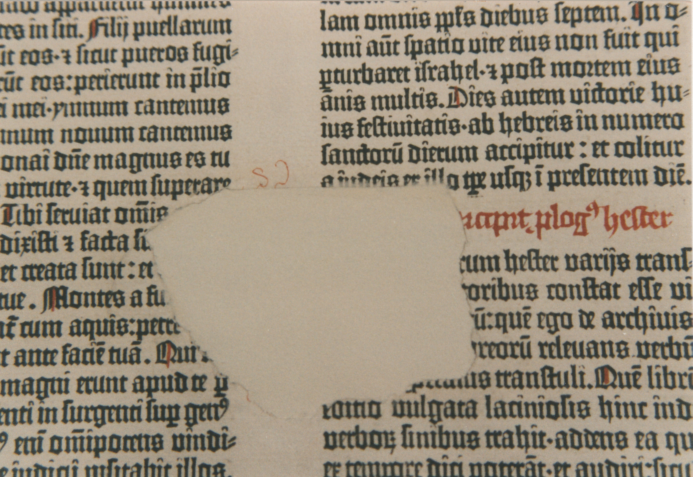 tes in siti. Filij puellarum
ūt eos·⁊ sicut pueros fugi⸗
rūt eos:perierunt in p̄lio
i mei·ymnum cantemus
mnum nouum cantemus
onai dn̄e magnus es tu
uirtute·⁊ quem superare
Tibi seruiat om̄is
dixisti ⁊ facta
et creata sunt: et
tue. Montes a fu
cum aquis:petre
t ante faciē tuā. Qui
magni erunt apud te
enti in surgenti sup
eni om̄ipotens vindi⸗
in die iudicij visitabit illos.
S2
lam omnis pp̄ls diebus septem. In o⸗
mni aūt spatio vite eius non fuit qui
p̱turbaret israhel·⁊ post mortem eius
ānis multis. Dies autem victorie hu⸗
ius festiuitatis·ab hebreis in numero
sanctorū dierum accipitur: et colitur
a iudeis ex illo tp̄e usq̨ ī presentem diē.
incipit plogꝰ hester
rum hester varijs trans⸗
oribus constat esse vi
ū:quē ego de archiuis
reorū releuans verbū
transtuli. Quē librū
editio vulgata laciniosis hinc ind
verboꝝ sinibus trahit·addens ea qu
ex tempore dici poterāt·et audiri:sicut